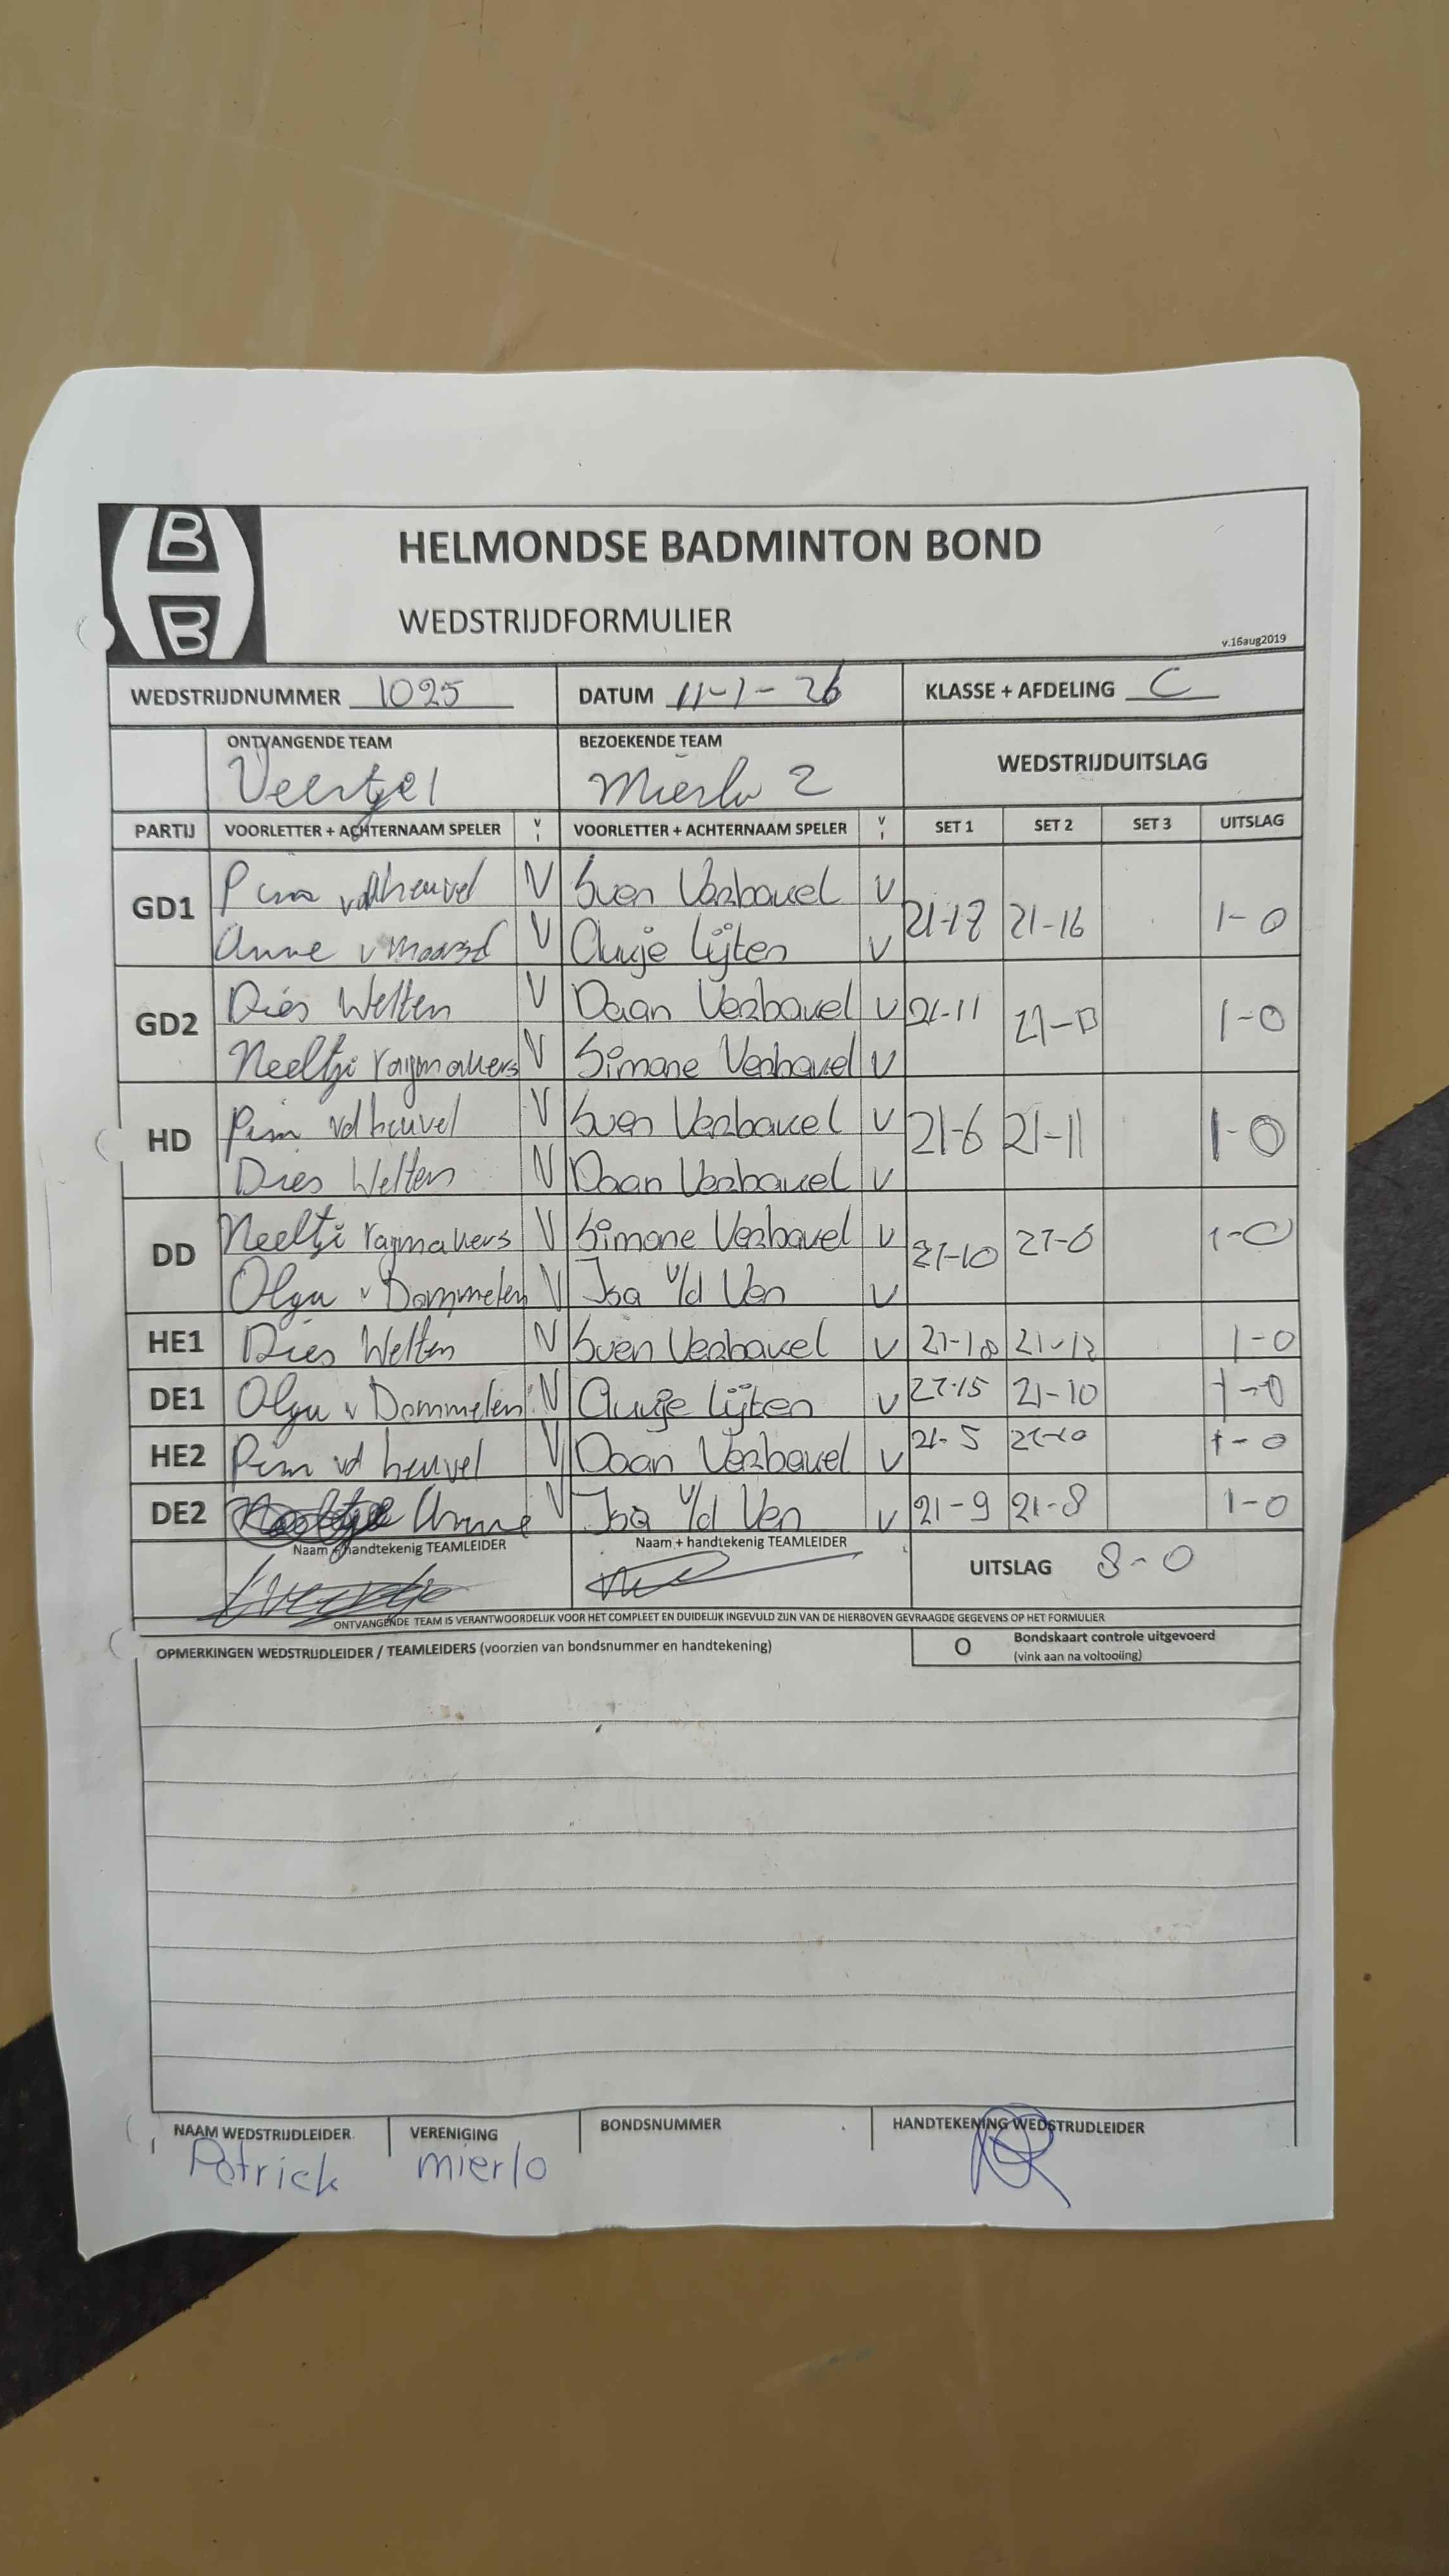 B
B
HELMONDSE BADMINTON BOND
WEDSTRIJDFORMULIER
v.16aug2019
WEDSTRIJDNUMMER 1025 DATUM 11-1-26 KLASSE + AFDELING C
ONTVANGENDE TEAM BEZOEKENDE TEAM WEDSTRIJDUITSLAG
Mierlo 2
PARTIJ VOORLETTER + ACHTERNAAM SPELER V I VOORLETTER + ACHTERNAAM SPELER V I SET 1 SET 2 SET 3 UITSLAG
GD1 Pim vd heuvel V Sven Verbakel V 21-17 21-16 1-0
Anne v V Lijten V
GD2 Dies Welten V Daan Verbakel V 21-11 21-13 1-0
Neeltje raymakers V Simone Verbakel V
HD Pim vd heuvel V Sven Verbakel V 21-6 21-11 1-0
Dies Welten V Daan Verbakel V
DD Neeltje raymakers V Simone Verbakel V 21-10 21-6 1-0
Olga v Dommelen V Isa v/d Ven V
HE1 Dies Welten V Sven Verbakel V 1-0
DE1 Olga v Dommelen V Lijten V 21-10 1-0
HE2 Pim vd heuvel V Daan Verbakel V 21-5 1-0
DE2 Anne V Isa v/d Ven V 21-9 21-8 1-0
Naam + handtekenig TEAMLEIDER Naam + handtekenig TEAMLEIDER UITSLAG 8-0
ONTVANGENDE TEAM IS VERANTWOORDELIJK VOOR HET COMPLEET EN DUIDELIJK INGEVULD ZIJN VAN DE HIERBOVEN GEVRAAGDE GEGEVENS OP HET FORMULIER
OPMERKINGEN WEDSTRIJDLEIDER / TEAMLEIDERS (voorzien van bondsnummer en handtekening) O Bondskaart controle uitgevoerd
(vink aan na voltooiing)
NAAM WEDSTRIJDLEIDER VERENIGING BONDSNUMMER HANDTEKENING WEDSTRIJDLEIDER
Patrick mierlo